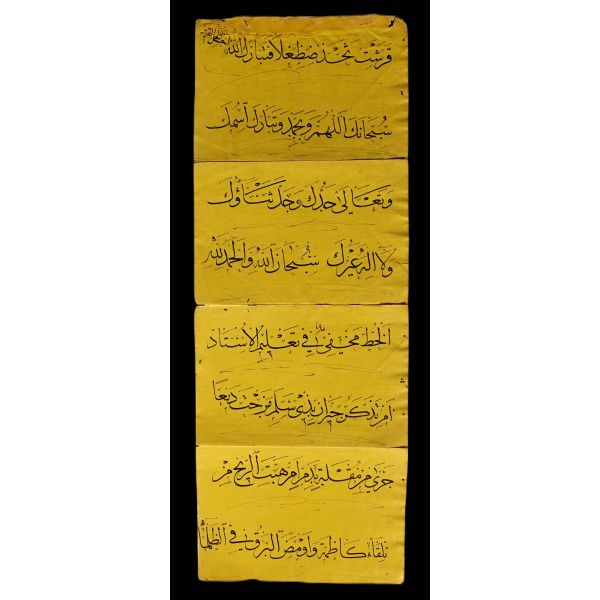 قرشت ثخذ ضظغلا فتبارك الله
سبحانك اللهم وبحمدك وتبارك اسمك
وتعالى جدك وجل ثناؤك
ولا اله غيرك سبحان الله والحمد لله
الخط مخفي في تعليم الاستاد
امن تذكر جيران بذي سلم مزجت دمعا
جرى من مقلة بدم ام هبت الريح من
تلقاء كاظمة واومض البرق في الظلما